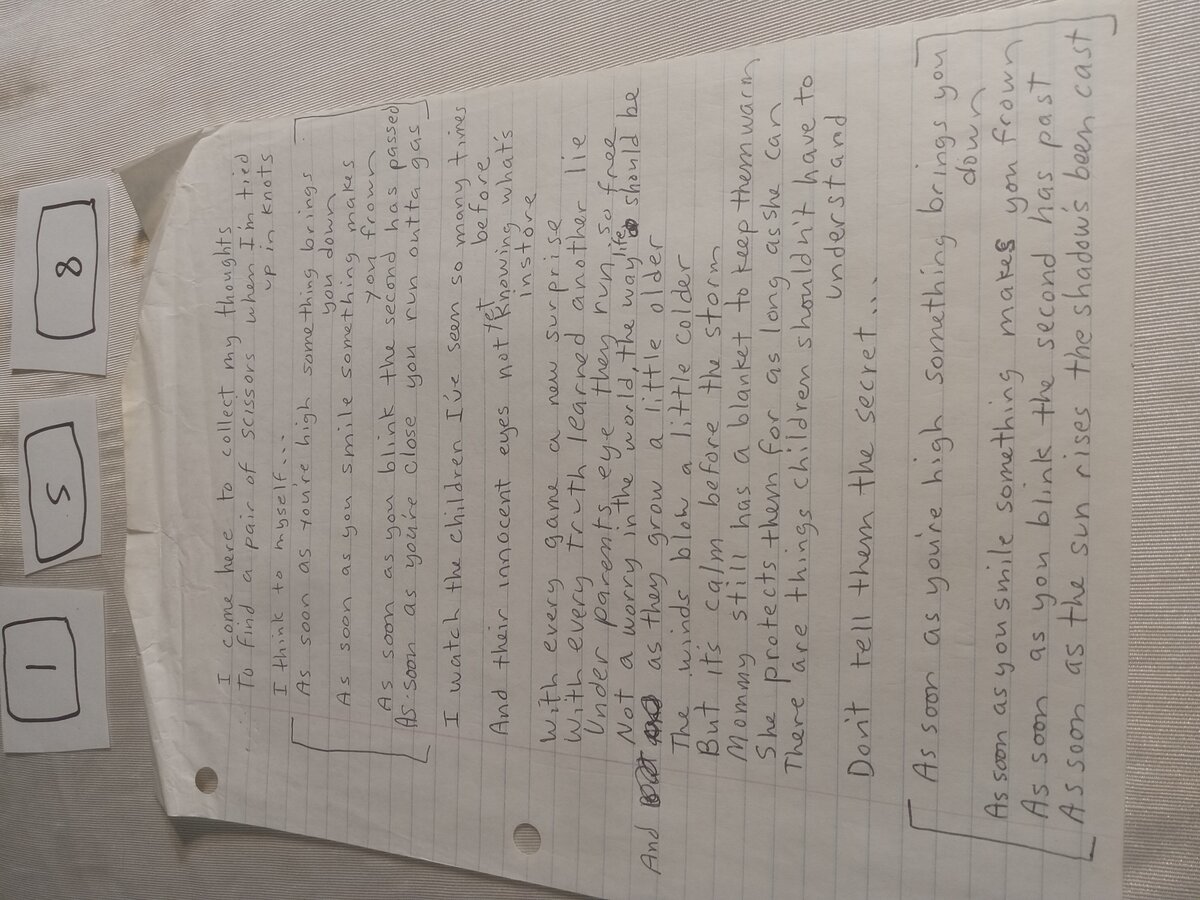 1
5
8
I come here to collect my thoughts
To find a pair of scissors when I'm tied
up in knots
I think to myself...
As soon as you're high something brings
you down
As soon as you smile something makes
you frown
As soon as you blink the second has passed
As soon as you're close you run outta gas
I watch the children I've seen so many times
before
And their innocent eyes not yet knowing what's
instore
With every game a new surprise
With every truth learned another lie
Under parents eye they run, so free
Not a worry in the world, the way life should be
And as they grow a little older
The winds blow a little colder
But it's calm before the storm
Mommy still has a blanket to keep them warm
She protects them for as long as she can
There are things children shouldn't have to
understand
Don't tell them the secret...
As soon as you're high something brings you
down
As soon as you smile something makes you frown
As soon as you blink the second has past
As soon as the sun rises the shadow's been cast